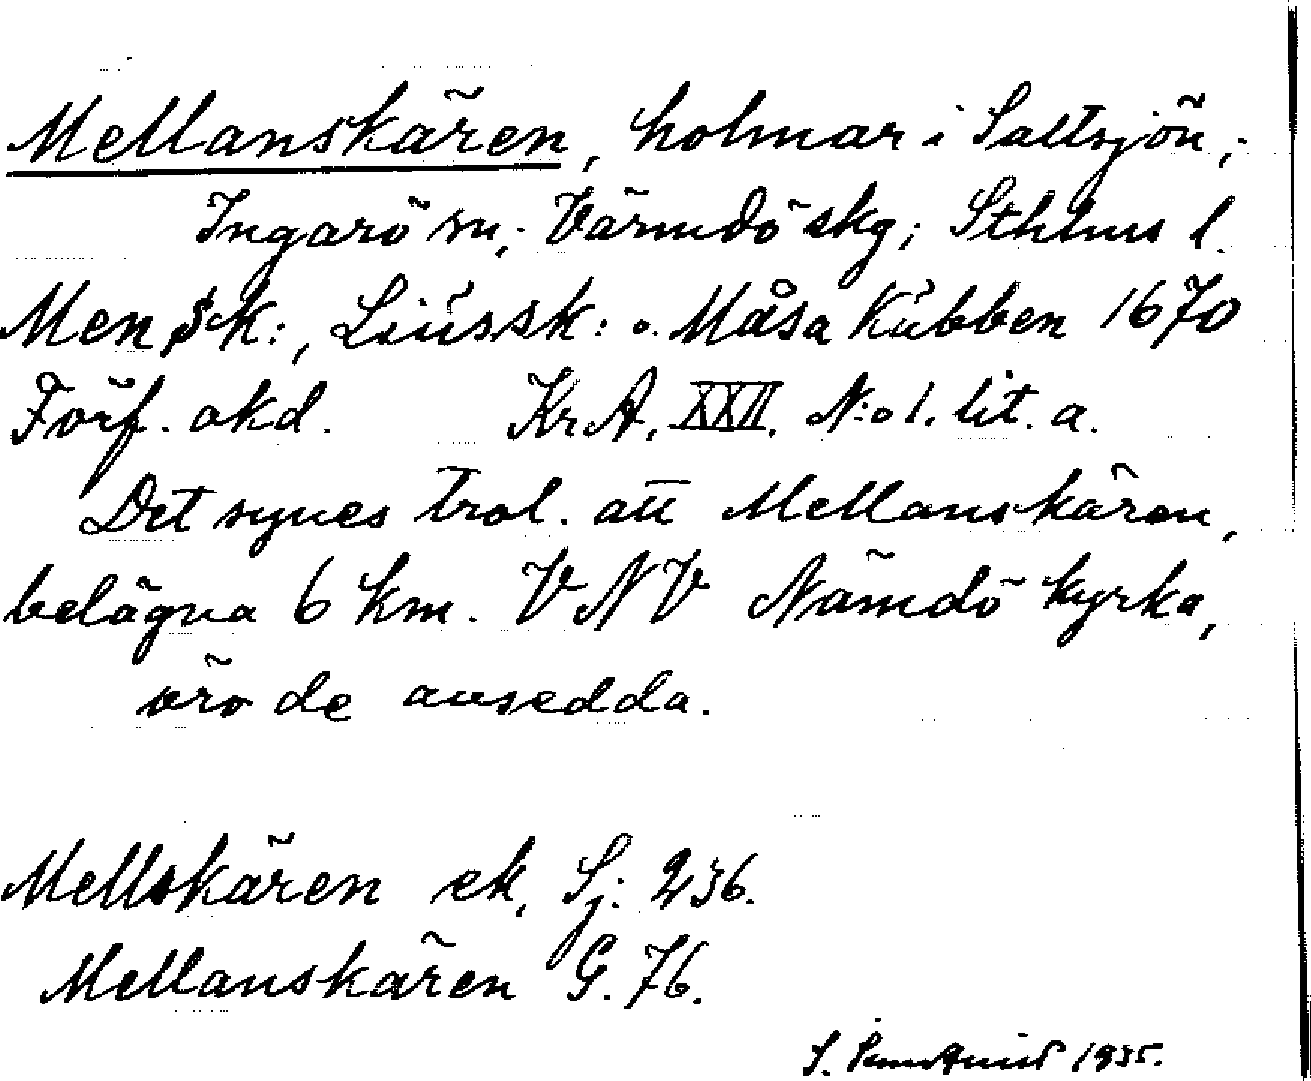 Mellanskären, holmar i Saltsjön,
Ingarö sn, Värmdö skg; Sthlms l.
Men Sk:, Liússk: o. Måsa Kúbben 1670
Förf. okd. KrA. XXII. N:o 1. lit. a.
Det synes trol. att Mellanskären,
belägna 6 km. VNV Nämdö kyrka,
äro de avsedda.
Mellskären ek. Sj: 236.
Mellanskären G. 76.
S. 1935.